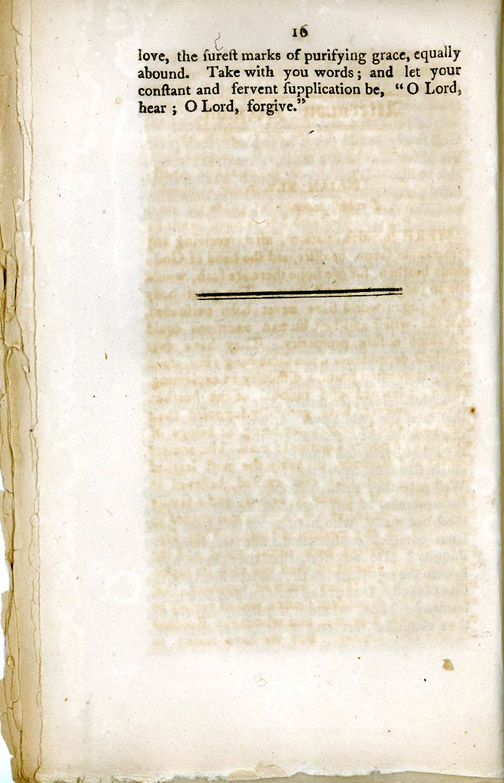 16
love, the ſureſt marks of purifying grace, equally
abound. Take with you words; and let your
conſtant and fervent ſupplication be, “O Lord,
hear; O Lord, forgive.”